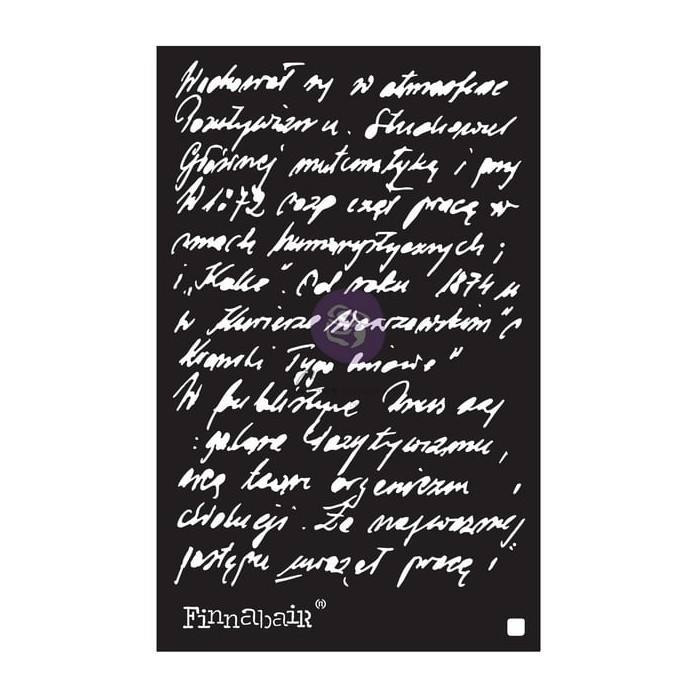 Wychował się w atmosferze
Pozytywizmu. Studiował
Głównej matematykę i przy
W 1872 rozp czął pracę w
smach humorystycznych i
i „Kolce”. Od roku 1874 w
w Kurierze Warszawskim" (
Kronski Tygodniowe"
W publistyce Prus
pozytywizmu,
organizm
ewolucji. Za najważniej
postępu uważał pracę i
Finnabair (R)